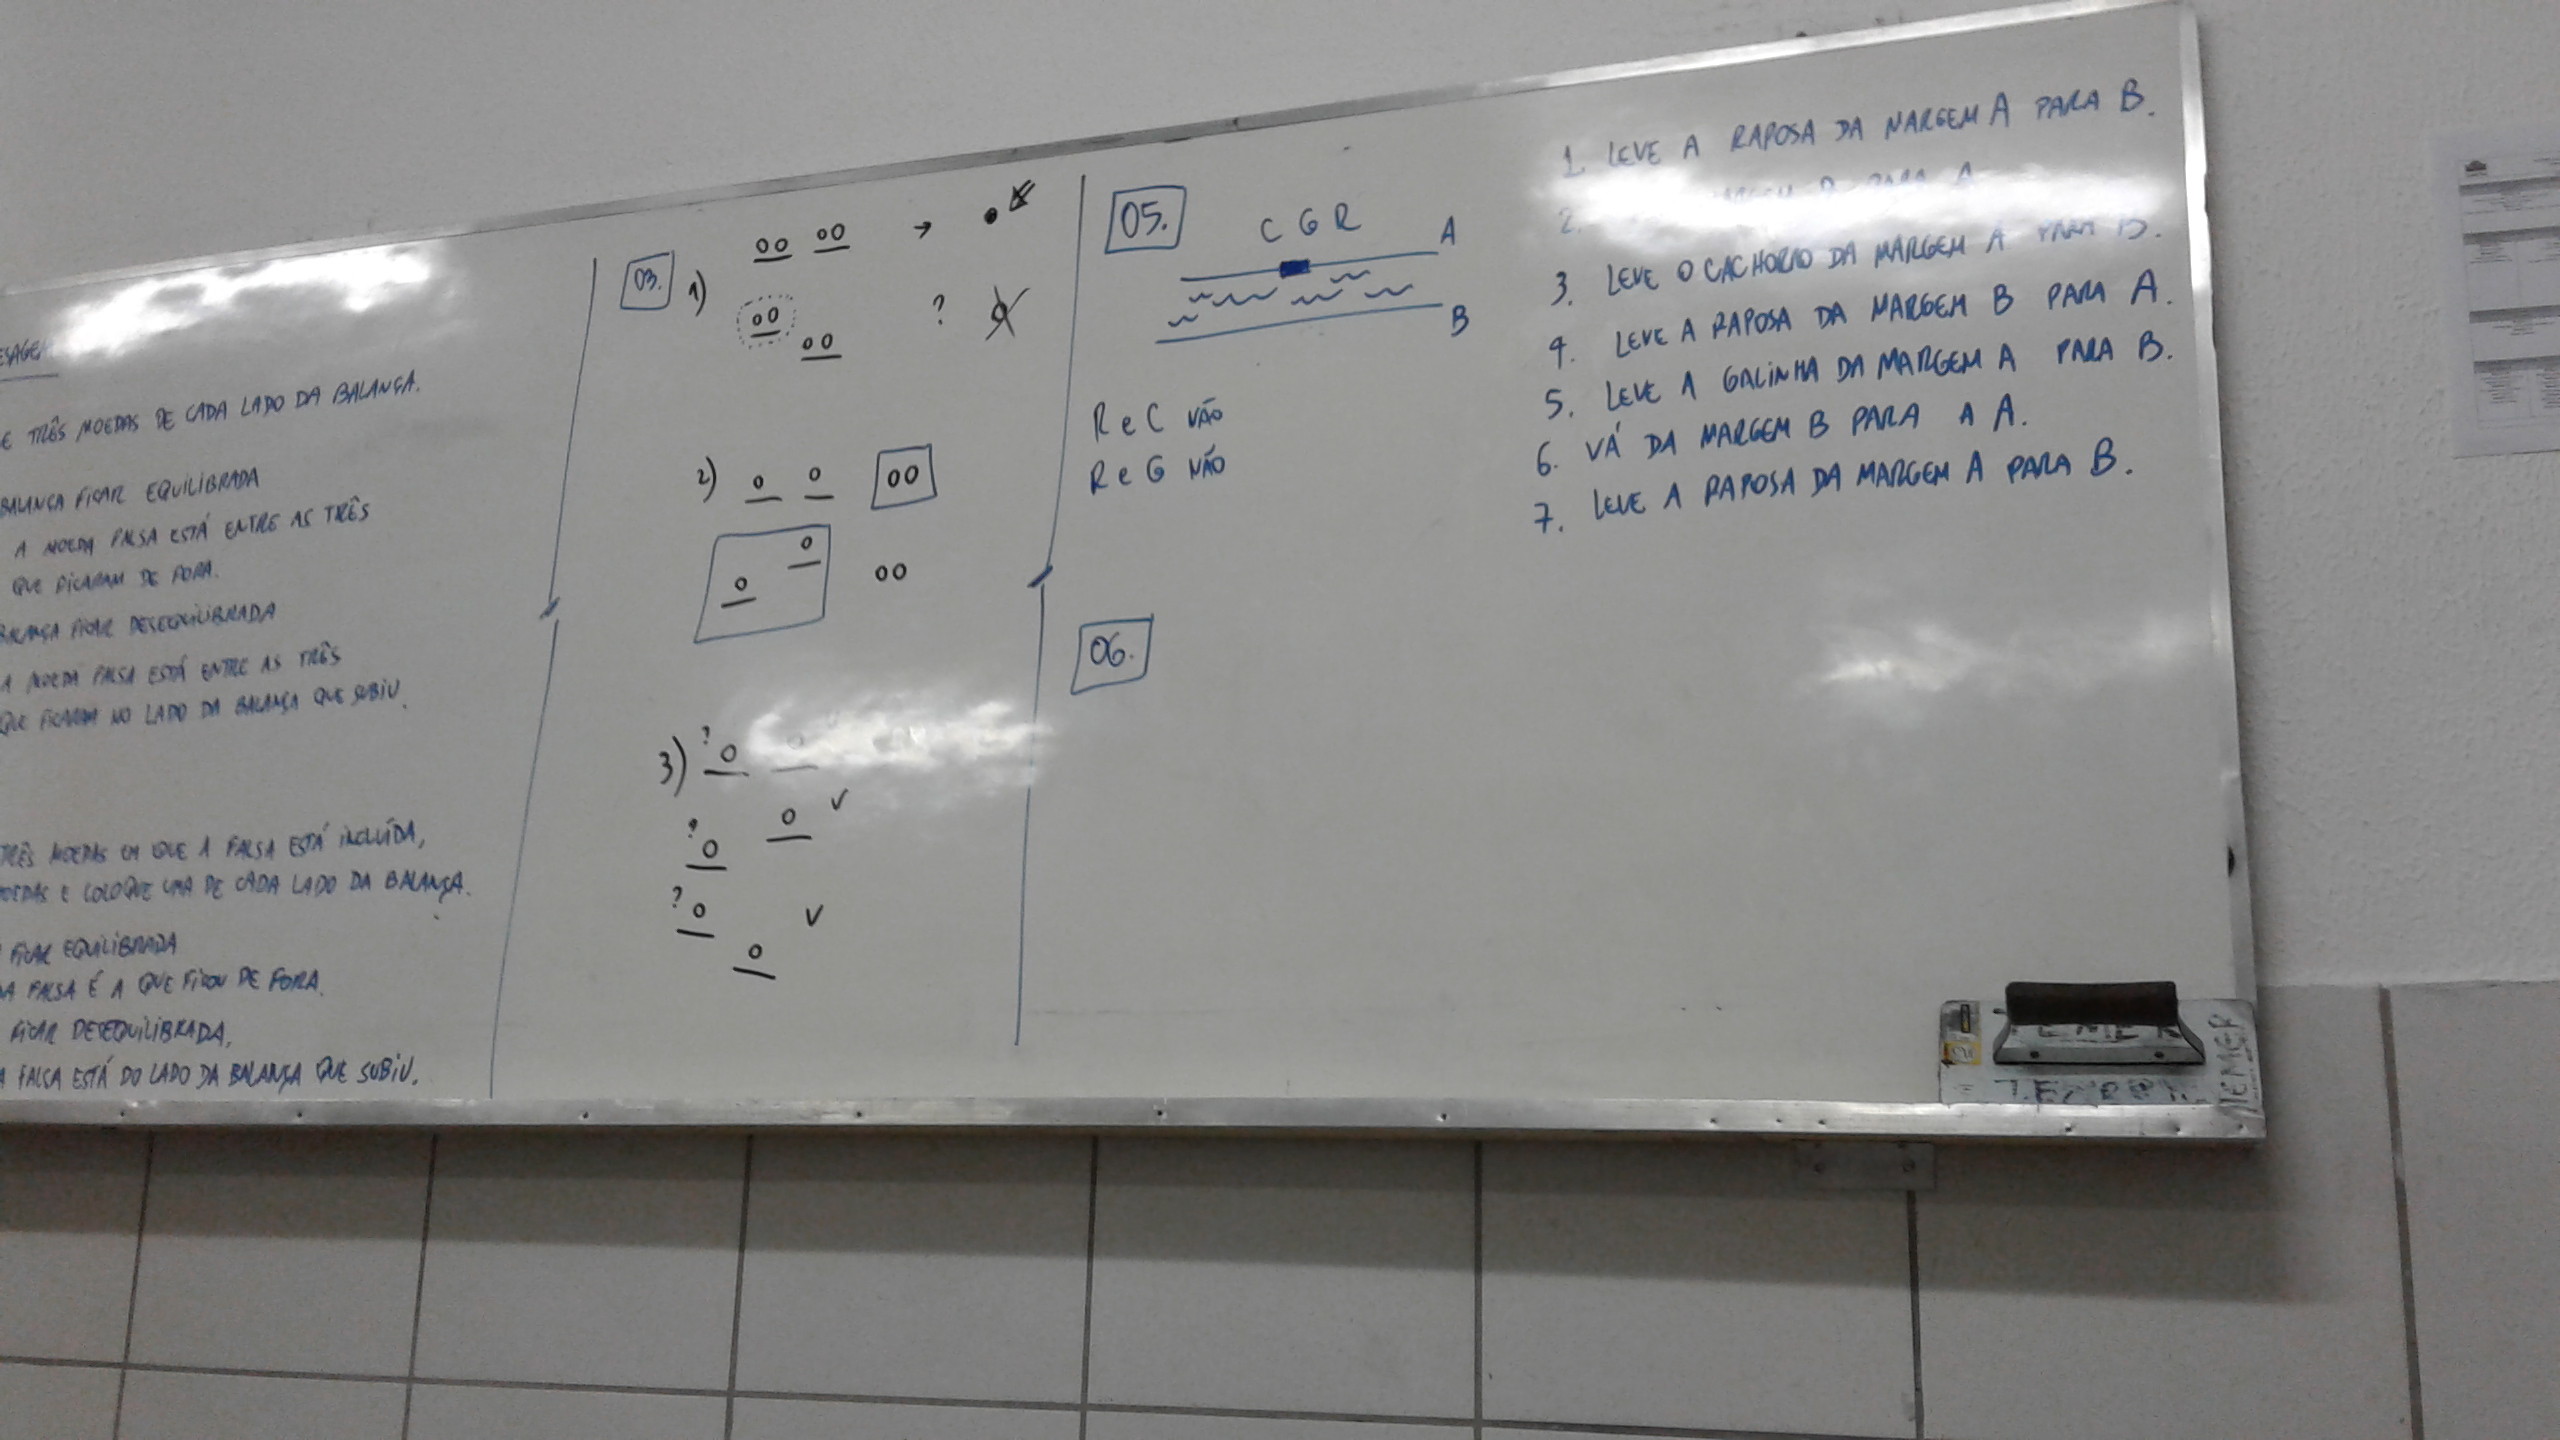 E TRÊS MOEDAS DE CADA LADO DA BALANÇA.
BALANÇA FICAR EQUILIBRADA
A MOEDA FALSA ESTÁ ENTRE AS TRÊS
QUE FICARAM DE FORA.
BALANÇA FICAR DESEQUILIBRADA
A MOEDA FALSA ESTÁ ENTRE AS TRÊS
QUE FICARAM NO LADO DA BALANÇA QUE SUBIU.
TRÊS MOEDAS EM QUE A FALSA ESTÁ INCLUÍDA,
MOEDAS E COLOQUE UMA DE CADA LADO DA BALANÇA.
FICAR EQUILIBRADA
DA FALSA É A QUE FICOU DE FORA.
FICAR DESEQUILIBRADA,
A FALSA ESTÁ DO LADO DA BALANÇA QUE SUBIU.
03.
1)
?
2)
3) ?
?
?
05.
C G R
A
B
R e C NÃO
R e G NÃO
1. LEVE A RAPOSA DA MARGEM A PARA B.
2. MARGEM B PARA A
3. LEVE O CACHORRO DA MARGEM A PARA B.
4. LEVE A RAPOSA DA MARGEM B PARA A.
5. LEVE A GALINHA DA MARGEM A PARA B.
6. VÁ DA MARGEM B PARA A A.
7. LEVE A RAPOSA DA MARGEM A PARA B.
06.